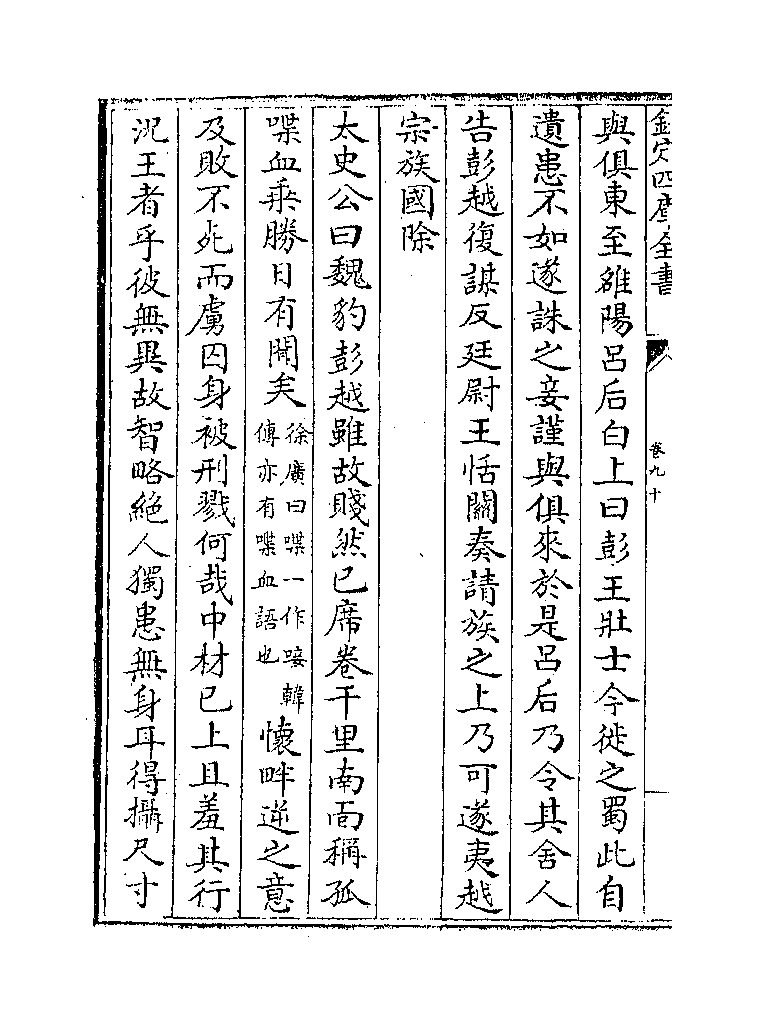 欽定四庫全書
卷九十
與俱東至雒陽呂后白上曰彭王壯士今徙之蜀此自
遺患不如遂誅之妾謹與俱來於是呂后乃令其舍人
告彭越復謀反廷尉王恬關奏請族之上乃可遂夷越
宗族國除
太史公曰魏豹彭越雖故賤然已席卷千里南面稱孤
喋血乘勝日有聞矣徐廣曰喋一作啑韓傳亦有喋血語也懷畔逆之意
及敗不死而虜囚身被刑戮何哉中材已上且羞其行
況王者乎彼無異故智略絕人獨患無身耳得攝尺寸